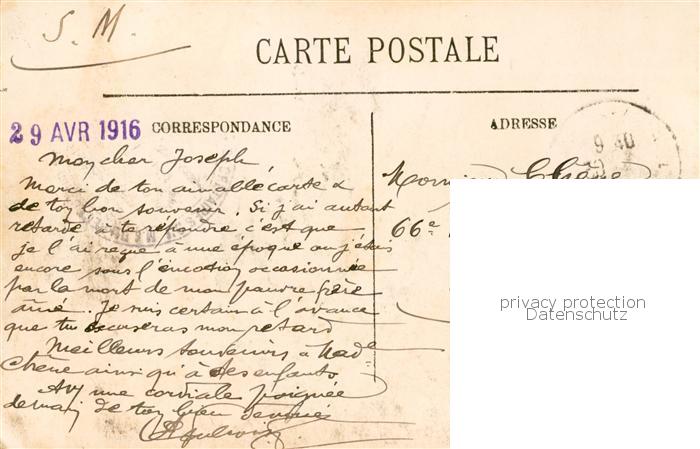 S. M.
CARTE POSTALE
29 AVR 1916 CORRESPONDANCE
ADRESSE
Mon cher Joseph
Merci de ton aimable carte &
de ton bon souvenir. Si j'ai autant
retardé à te répondre c'est que
je l'ai reçue à une époque où j'étais
encore sous l'émotion occasionnée
par la mort de mon pauvre frère
aîné. Je suis certain à l'avance
que tu excuseras mon retard
Meilleurs souvenirs à Made
Chêne ainsi qu'à ses enfants
une cordiale poignée
de main de ton bien
Monsieur Chêne
66e
privacy protection
Datenschutz